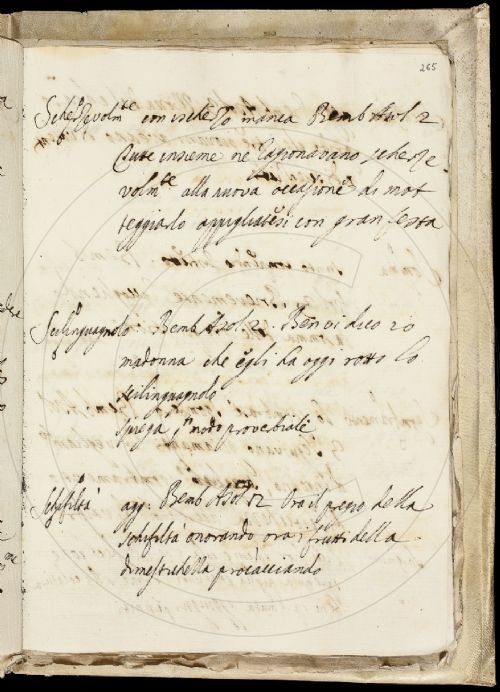 265
Scherzevolm.te con ischerzo manca Bemb Asol 2
Tutte insieme ne ragionavano scherze
volm.te alla nuova occasione di mot
teggiarlo appigliatesi con gran festa
Scilinguagnolo. Bemb Asol. 2. Ben vi dico io
madonna che egli ha oggi rotto lo
scilinguagnolo
spiega modo proverbiale
Schifiltà agg. Bemb Asol 2 Ora il pegno della
schifiltà onorando ora i frutti della
dimestichella procacciando